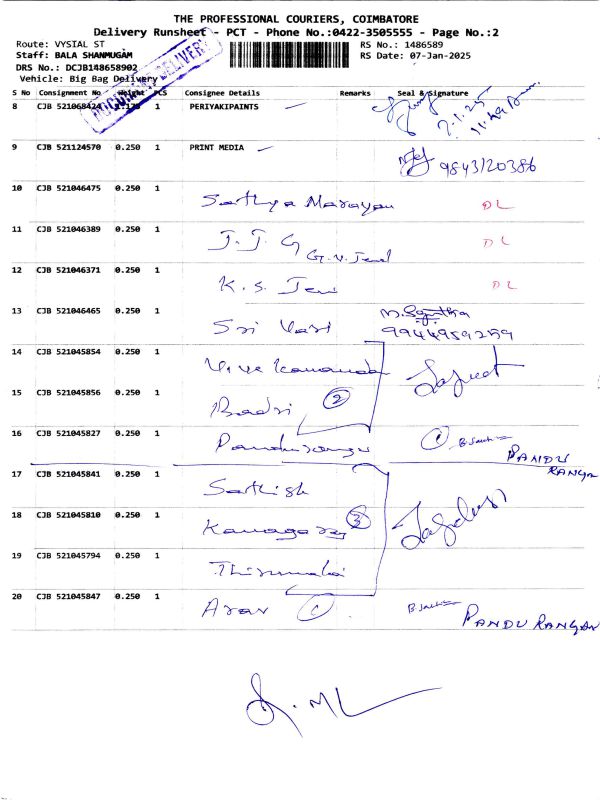 THE PROFESSIONAL COURIERS, COIMBATORE
Delivery Runsheet - PCT - Phone No.:0422-3505555 - Page No.:2
Route: VYSIAL ST RS No.: 1486589
Staff: BALA SHANMUGAM RS Date: 07-Jan-2025
DRS No.: DCJB148658902
Vehicle: Big Bag Delivery
DOCUMENT DELIVERY
S No Consignment No Weight PCS Consignee Details Remarks Seal & Signature
8 CJB 521068424 1 PERIYAKIPAINTS 7.1.25
9 CJB 521124570 0.250 1 PRINT MEDIA 9843120386
10 CJB 521046475 0.250 1 Sathya Narayan DL
11 CJB 521046389 0.250 1 J.J. G DL
G.V.
12 CJB 521046371 0.250 1 K.S. DL
13 CJB 521046465 0.250 1 Sri 9944959259
14 CJB 521045854 0.250 1
15 CJB 521045856 0.250 1 Badri 2
16 CJB 521045827 0.250 1 Pandurangu 1 PANDU
RANGA
17 CJB 521045841 0.250 1 Sathish
18 CJB 521045810 0.250 1 Kanagaraj 3
19 CJB 521045794 0.250 1 Thirumalai
20 CJB 521045847 0.250 1 1 PANDU RANGAN